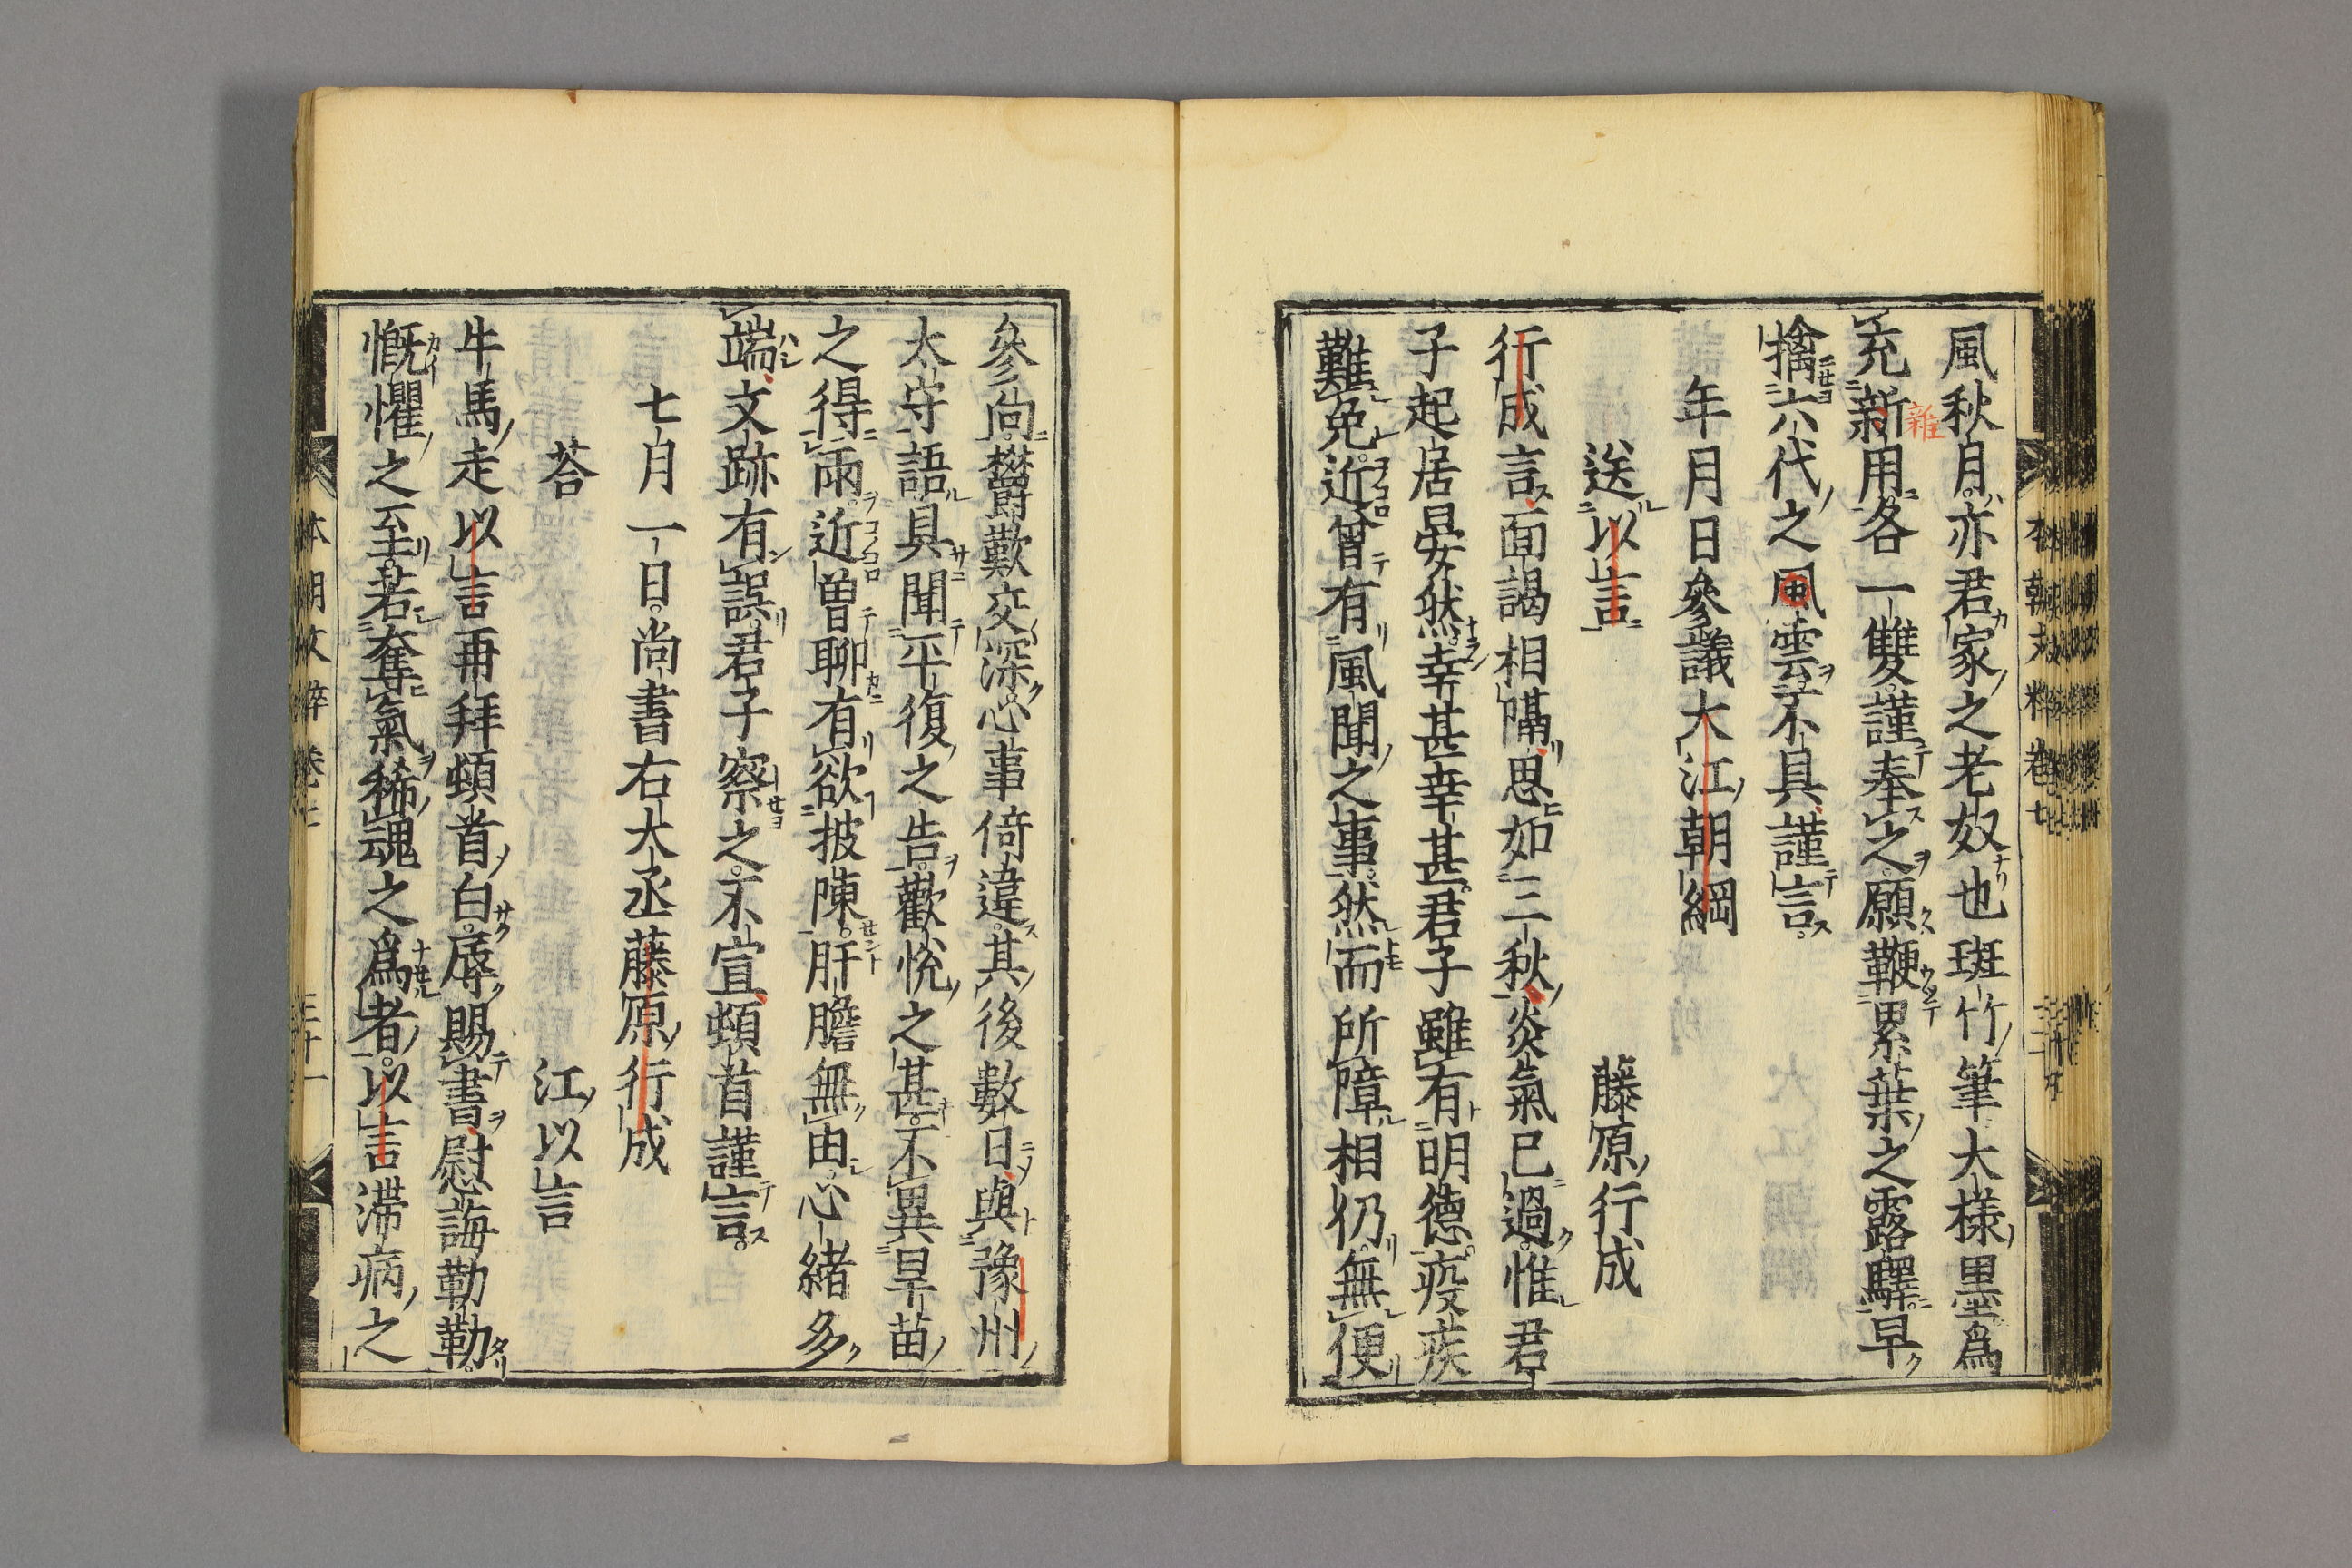 風秋月亦君家之老奴也斑竹筆大樣墨爲
充新用各一雙謹奉之願鞭累葉之露驛早
擒六代之風雲不具謹言
年月日參議大江朝綱
送以言　藤原行成
行成言面謁相隔思如三秋炎氣已過惟君
子起居晏然幸甚幸甚君子雖有明德疫疾
難免近曾有風聞之事然而所障相仍無便
參向欝歎交深心事倚違其後數日與豫州
太守語具聞平復之告歡悅之甚不異旱苗
之得雨近曽聊有欲披陳肝膽無由心緒多
端文跡有誤君子察之不宣頓首謹言
七月一日尚書右大丞藤原行成
荅　江以言
牛馬走以言再拜頓首白辱賜書慰誨勤勤
慨懼之至若奪氣稀魂之爲者以言滞病之
本朝文粹卷七　三十一